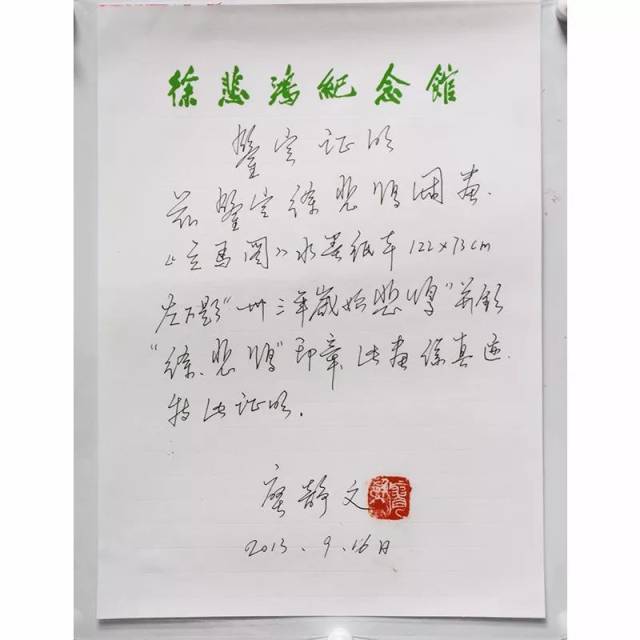 徐悲鸿纪念馆
鉴定证明
兹鉴定徐悲鸿国画
《立马图》水墨纸本 122x73cm
左下题“卅三年岁始悲鸿”并钤
“徐悲鸿”印章 此画系真迹.
特此证明.
廖静文
2013.9.16日